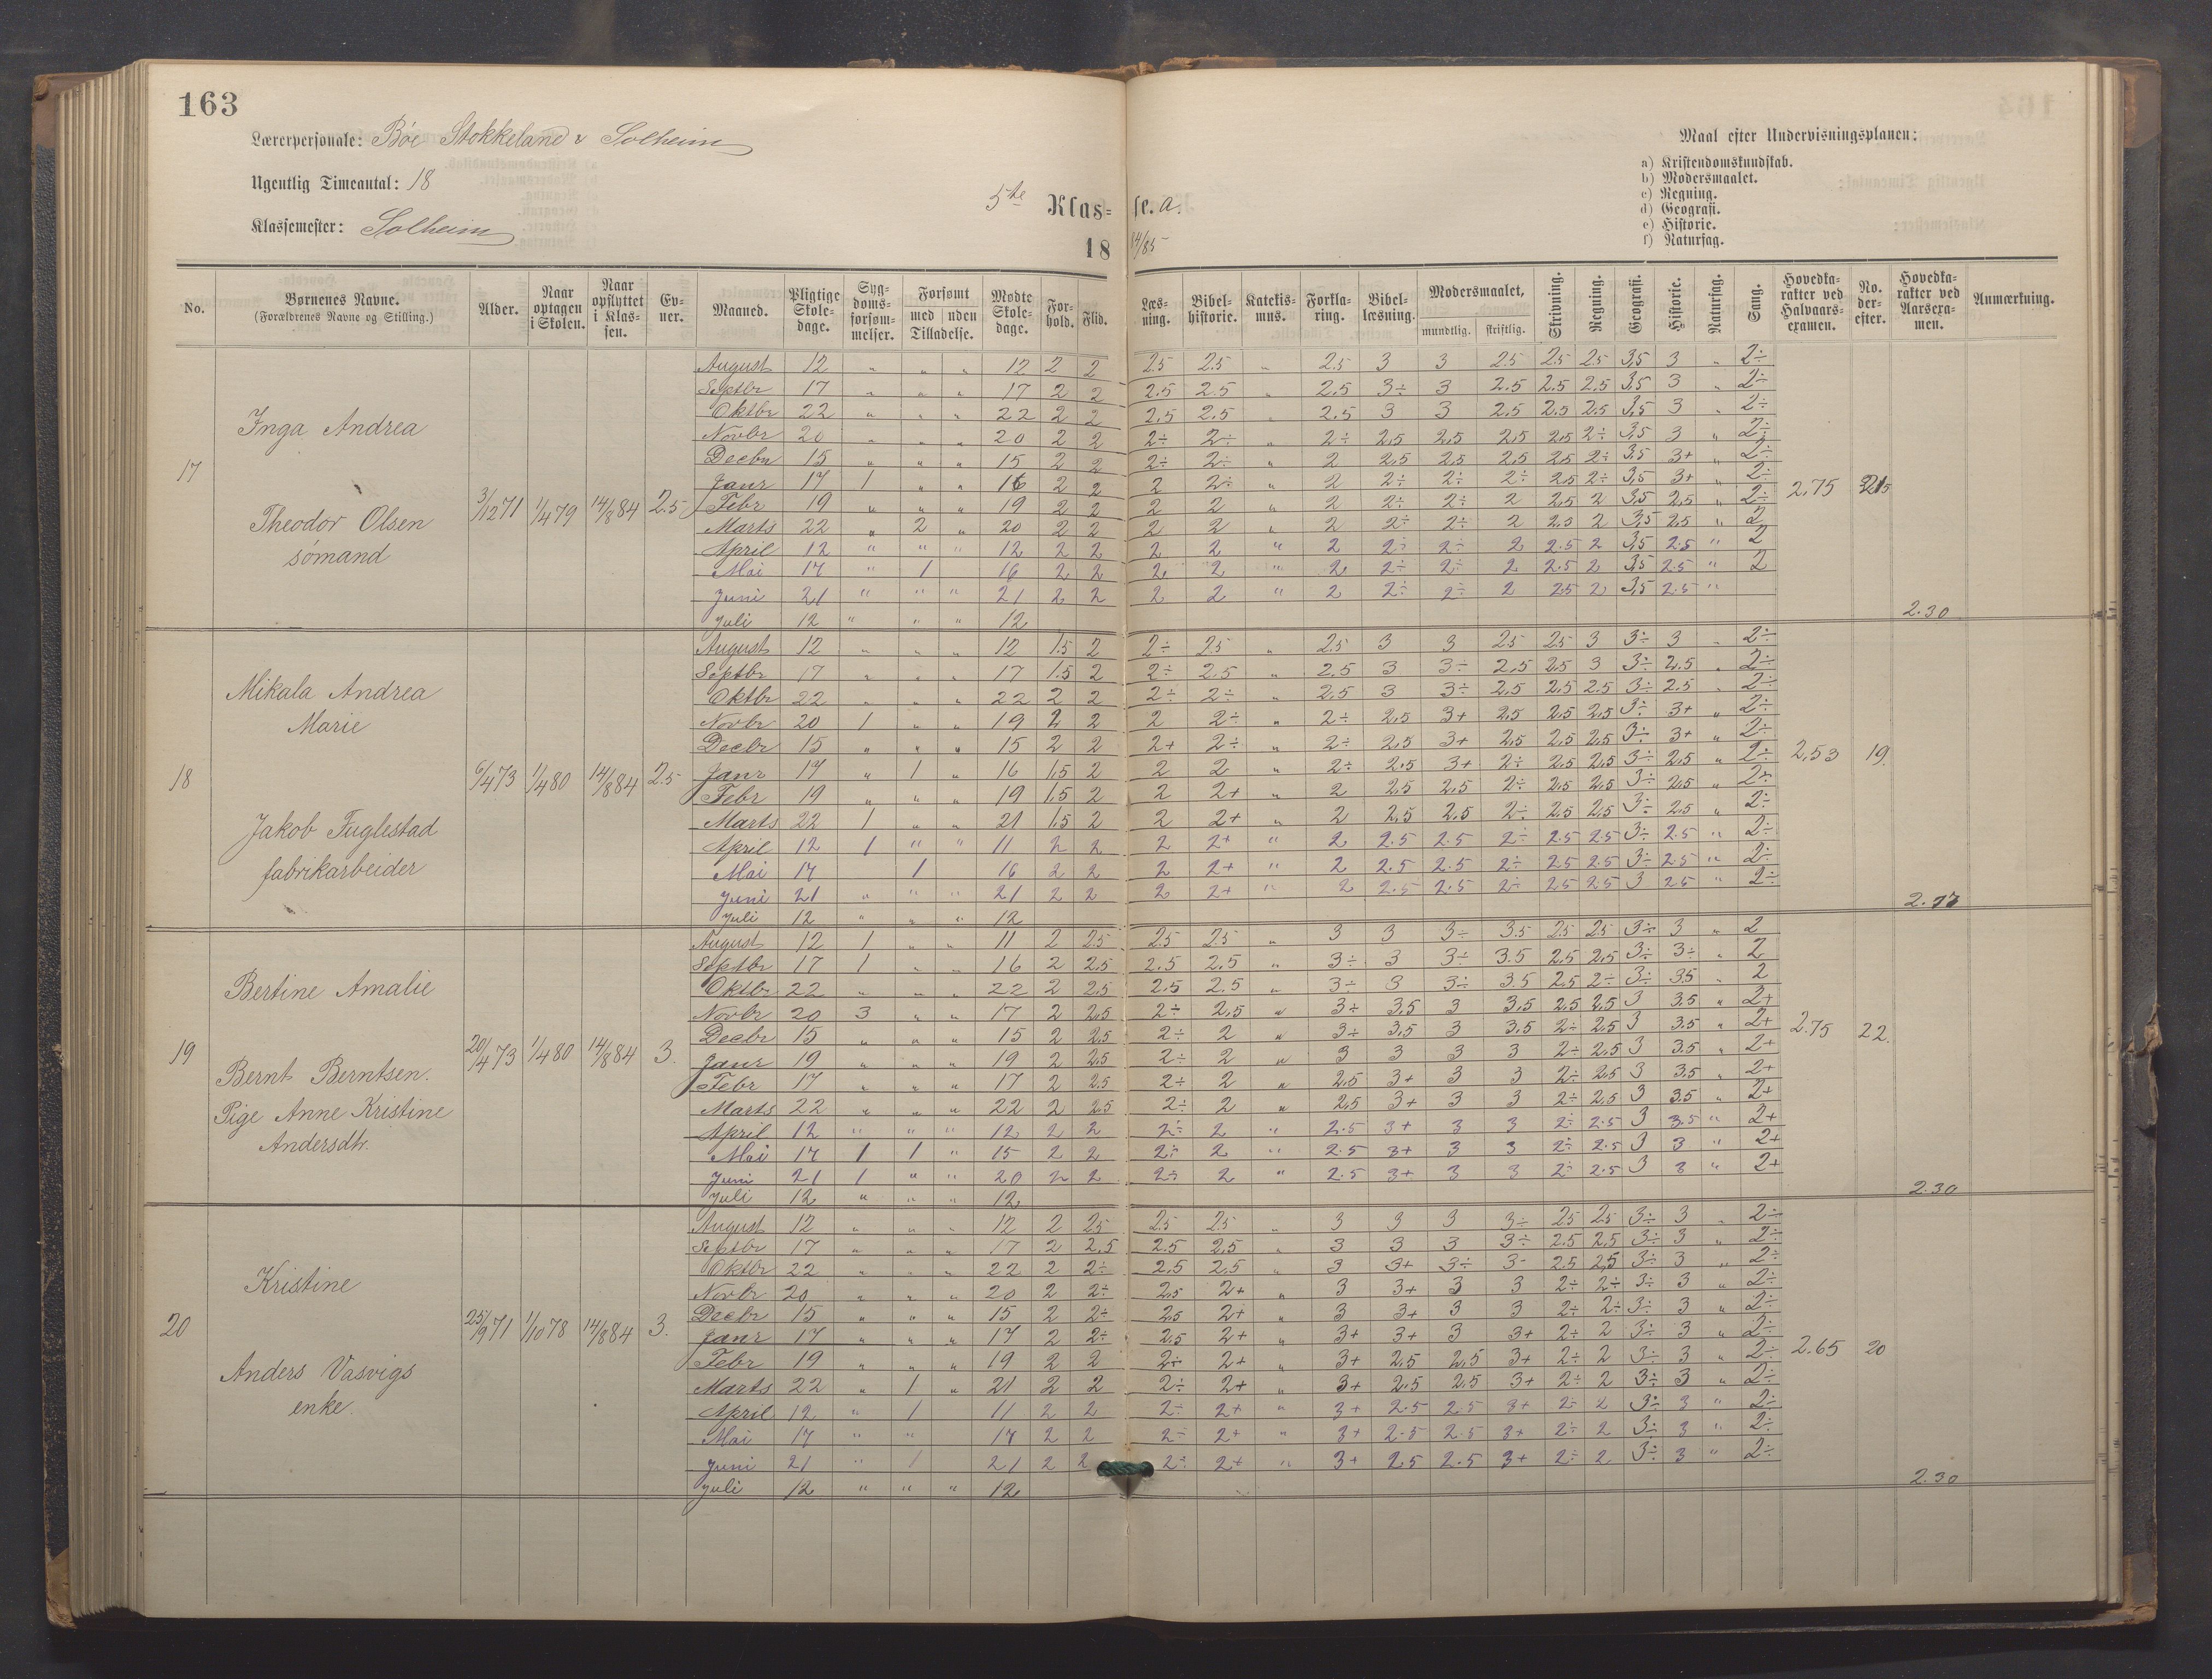 163
Lærerpersonale: Böe Stokkeland & Solheim
Ugentlig Timeantal: 18
Klassemester: Solheim
5te Klas= se. a.
18 84/85
Maal efter Undervisningsplanen:
a) Kristendomskundskab.
b) Modersmaalet.
c) Regning.
d) Geografi.
e) Historie.
f) Naturfag.
No. | Børnenes Navne. (Forældrenes Navne og Stilling.) | Alder. | Naar optagen i Skolen. | Naar opflyttet i Klas- sen. | Ev- ner. | Maaned. | Pligtige Skole- dage. | Syg- doms- forsøm- melser. | Forsømt med uden Tilladelse. | Mødte Skole- dage. | For- hold. | Flid. | Læs- ning. | Bibel- historie. | Katekis- mus. | Forkla- ring. | Bibel- læsning. | Modersmaalet, mundtlig. skriftlig. | Skrivning. | Regning. | Geografi. | Historie. | Naturfag. | Sang. | Hovedka- rakter ved Halvaars- examen. | No. der- efter. | Hovedka- rakter ved Aarsexa- men. | Anmærkning.
17 Inga Andrea
Theodor Olsen
sömand
3/12 71 1/4 79 14/8 84 2.5
August 12 " " " 12 2 2 2.5 2.5 " 2.5 3 3 2.5 2.5 2.5 3,5 3 " 2÷
Septbr 17 " " " 17 2 2 2.5 2.5 " 2.5 3÷ 3 2.5 2.5 2.5 3,5 3 " 2÷
Oktbr 22 " " " 22 2 2 2,5 2,5 " 2.5 3 3 2,5 2.5 2.5 3,5 3 " 2÷
Novbr 20 " " " 20 2 2 2÷ 2÷ " 2÷ 2,5 2,5 2,5 2,5 2÷ 3,5 3 " 2÷
Decbr 15 " " " 15 2 2 2÷ 2÷ " 2 2,5 2,5 2,5 2,5 2÷ 3,5 3+ " 2÷
Janr 17 1 " " 16 2 2 2 2÷ " 2 2÷ 2÷ 2÷ 2,5 2÷ 3,5 3+ " 2÷
Febr 19 " " " 19 2 2 2 2 " 2 2÷ 2÷ 2 2,5 2 3,5 2,5 " 2÷
Marts 22 " 2 " 20 2 2 2 2 " 2 2÷ 2÷ 2 2.5 2 3,5 2,5 " 2
April 12 " " " 12 2 2 2 2 " 2 2÷ 2÷ 2 2.5 2 3,5 2.5 " 2
Mai 17 " 1 16 2 2 2 2 " 2 2÷ 2÷ 2 2.5 2 3,5 2.5 " 2
Juni 21 " " " 21 2 2 2 2 " 2 2÷ 2÷ 2 2.5 2 3,5 2.5 "
Juli 12 " " " 12
2,75
2.30
18 Mikala Andrea
Marie
Jakob Fuglestad
fabrikarbeider
6/4 73 1/4 80 14/8 84 2.5
August 12 " " " 12 1.5 2 2÷ 2.5 " 2.5 3 3 2.5 2.5 3 3÷ 3 " 2÷
Septbr 17 " " " 17 1.5 2 2÷ 2.5 " 2.5 3 3÷ 2,5 2.5 3 3÷ 2.5 " 2÷
Oktbr 22 " " " 22 2 2 2÷ 2÷ " 2,5 3 3÷ 2,5 2,5 2.5 3÷ 2.5 " 2÷
Novbr 20 1 " " 19 2 2 2 2÷ " 2÷ 2,5 3+ 2,5 2,5 2,5 3÷ 3+ " 2÷
Decbr 15 " " " 15 2 2 2+ 2÷ " 2÷ 2,5 3+ 2,5 2,5 2,5 3÷ 3+ " 2÷
Janr 17 " 1 " 16 1,5 2 2 2 " 2÷ 2,5 3+ 2÷ 2,5 2,5 3÷ 2,5 " 2÷
Febr 19 " " " 19 1,5 2 2 2+ " 2 2,5 2,5 2÷ 2,5 2,5 3÷ 2,5 " 2÷
Marts 22 1 " " 21 1,5 2 2 2+ " 2 2,5 2,5 2÷ 2,5 2,5 3÷ 2,5 " 2÷
April 12 1 " " 11 2 2 2 2+ " 2 2.5 2.5 2÷ 2.5 2.5 3÷ 2.5 " 2÷
Mai 17 1 16 2 2 2 2+ " 2 2.5 2.5 2÷ 2.5 2.5 3÷ 2.5 " 2÷
Juni 21 " " " 21 2 2 2 2+ " 2 2.5 2.5 2÷ 2.5 2.5 3 2.5 " 2÷
Juli 12 " " " 12
2,53 19.
19 Bertine Amalie
Bernt Berntsen.
Pige Anne Kristine
Andersdtr.
20/4 73 1/4 80 14/8 84 3.
August 12 1 " " 11 2 2.5 2.5 2.5 " 3 3 3÷ 3.5 2.5 2.5 3÷ 3 " 2
Septbr 17 1 " " 16 2 2.5 2.5 2.5 " 3÷ 3 3÷ 3.5 2.5 2.5 3÷ 3÷ " 2
Oktbr 22 " " " 22 2 2.5 2.5 2.5 " 3÷ 3 3÷ 3.5 2.5 2÷ 3÷ 3.5 " 2
Novbr 20 3 " " 17 2 2,5 2÷ 2,5 " 3÷ 3,5 3 3,5 2,5 2,5 3 3,5 " 2+
Decbr 15 " " " 15 2 2,5 2÷ 2 " 3÷ 3,5 3 3,5 2÷ 2,5 3 3,5 " 2+
Janr 19 " " " 19 2 2,5 2÷ 2 " 3 3 3 3 2÷ 2,5 3 3,5 " 2+
Febr 17 " " " 17 2 2,5 2÷ 2 " 2,5 3+ 3 3 2÷ 2,5 3 3,5 " 2+
Marts 22 " " " 22 2 2,5 2÷ 2 " 2,5 3+ 3 3 2÷ 2,5 3 3,5 " 2+
April 12 " " " 12 2 2 2÷ 2 " 2.5 3+ 3 3 2÷ 2.5 3 3.5 " 2+
Mai 17 1 1 " 15 2 2 2÷ 2 " 2.5 3+ 3 3 2÷ 2.5 3 3 " 2+
Juni 21 1 " " 20 2 2 2÷ 2 " 2.5 3+ 3 3 2÷ 2.5 3 3 " 2+
Juli 12 " " " 12
2.75 22.
2.30
20 Kristine
Anders Vasvigs
enke.
25/9 71 1/10 78 14/8 84 3.
August 12 " " " 12 2 2.5 2.5 2.5 " 3 3 3 3÷ 2.5 2.5 3÷ 3 " 2÷
Septbr 17 " " " 17 2 2,5 2.5 2,5 " 3 3 3 3÷ 2.5 2,5 3÷ 3 " 2÷
Oktbr 22 " " " 22 2 2÷ 2,5 2,5 " 3 3+ 3÷ 3- 2.5 2,5 3÷ 3 " 2÷
Novbr 20 " " " 20 2 2÷ 2,5 2+ " 3 3+ 3 3 2÷ 2÷ 3÷ 3 " 2÷
Decbr 15 " " " 15 2 2÷ 2,5 2+ " 3 3+ 3 3 2÷ 2÷ 3÷ 3 " 2÷
Janr 17 " " " 17 2 2÷ 2,5 2+ " 3+ 3+ 3 3+ 2÷ 2 3÷ 3 " 2÷
Febr 19 " " " 19 2 2 2÷ 2+ " 3+ 2,5 2,5 3+ 2÷ 2 3÷ 3 " 2÷
Marts 22 " 1 " 21 2 2 2÷ 2+ " 3+ 2,5 2,5 3+ 2÷ 2 3÷ 3 " 2÷
April 12 " 1 11 2 2 2÷ 2+ " 3+ 2.5 2.5 3+ 2÷ 2 3÷ 3 " 2÷
Mai 17 " " 17 2 2 2÷ 2+ " 3+ 2.5 2.5 3+ 2÷ 2 3÷ 3 " 2÷
Juni 21 " 1 21 2 2 2÷ 2+ " 3+ 2.5 2.5 3+ 2÷ 2 3÷ 3 " 2÷
Juli 12 " " " 12
2.65 20
2.30